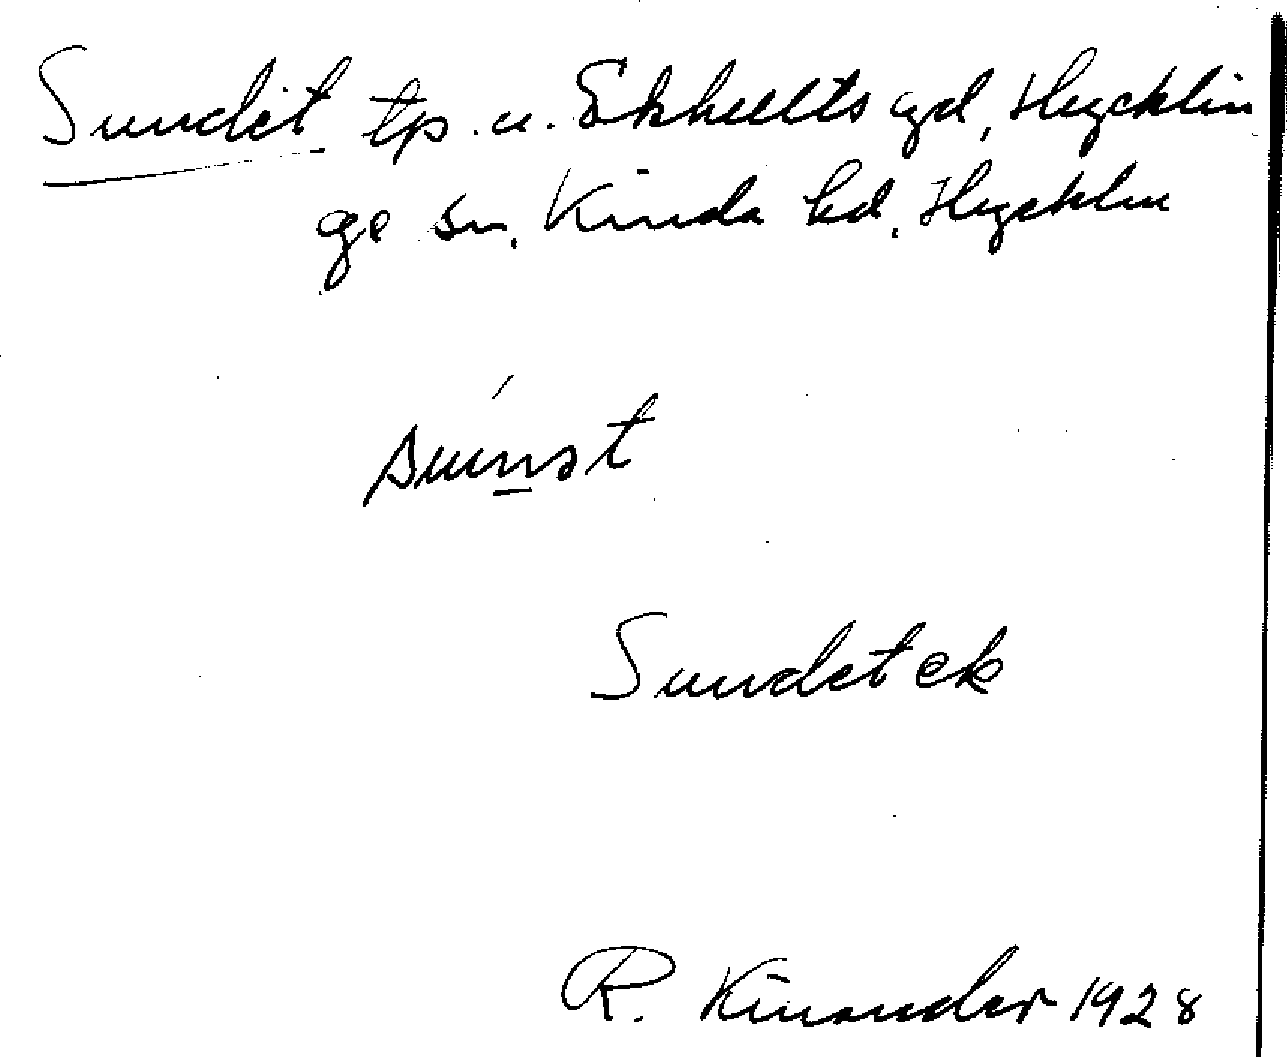 Sundet tp. u. Ekhults gd, Hycklin
ge sn, Kinda hd, Hycklin
sunst
Sundet ek
R. Kinander 1928